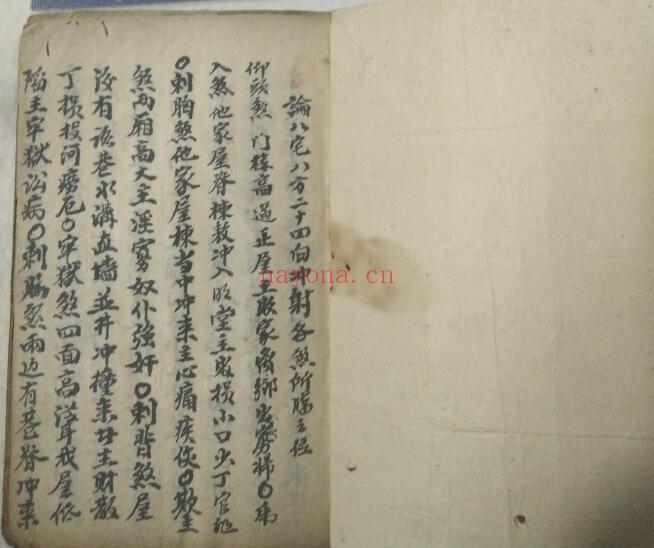 論八宅八方二十四向冲射各煞所勝主位
仰頭煞門樓高過正屋主敗家离鄉出寡婦〇
入煞他家屋脊棟敖冲入明堂主敗損小口少丁官訟
〇刺胸煞他家屋棟當中冲来主心痛疾〇欺主
煞兩廂高大主淫寡奴仆強奸〇刺背煞屋
後有巷水溝直墻並井冲撞来廿主財散
丁損投河癆厄〇牢獄煞四面高我屋低
陷主牢獄讼病〇刺脇煞兩边有巷脊冲来
narona.cn